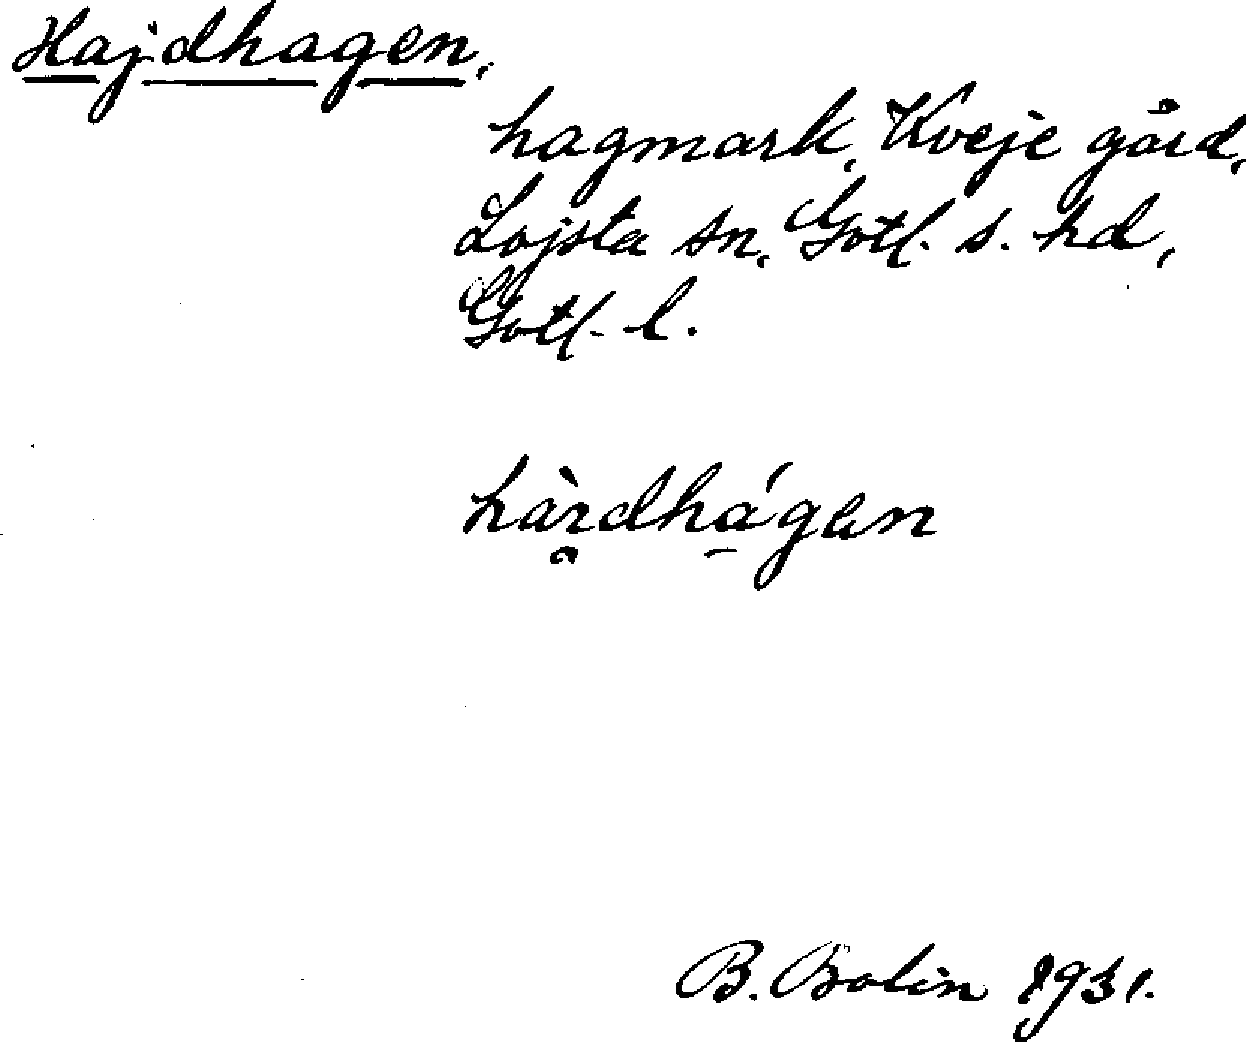 Hajdhagen,
hagmark, Kveje gård,
Lojsta sn, Gotl. s. hd,
Gotl. l.
B. Bolin 1931.